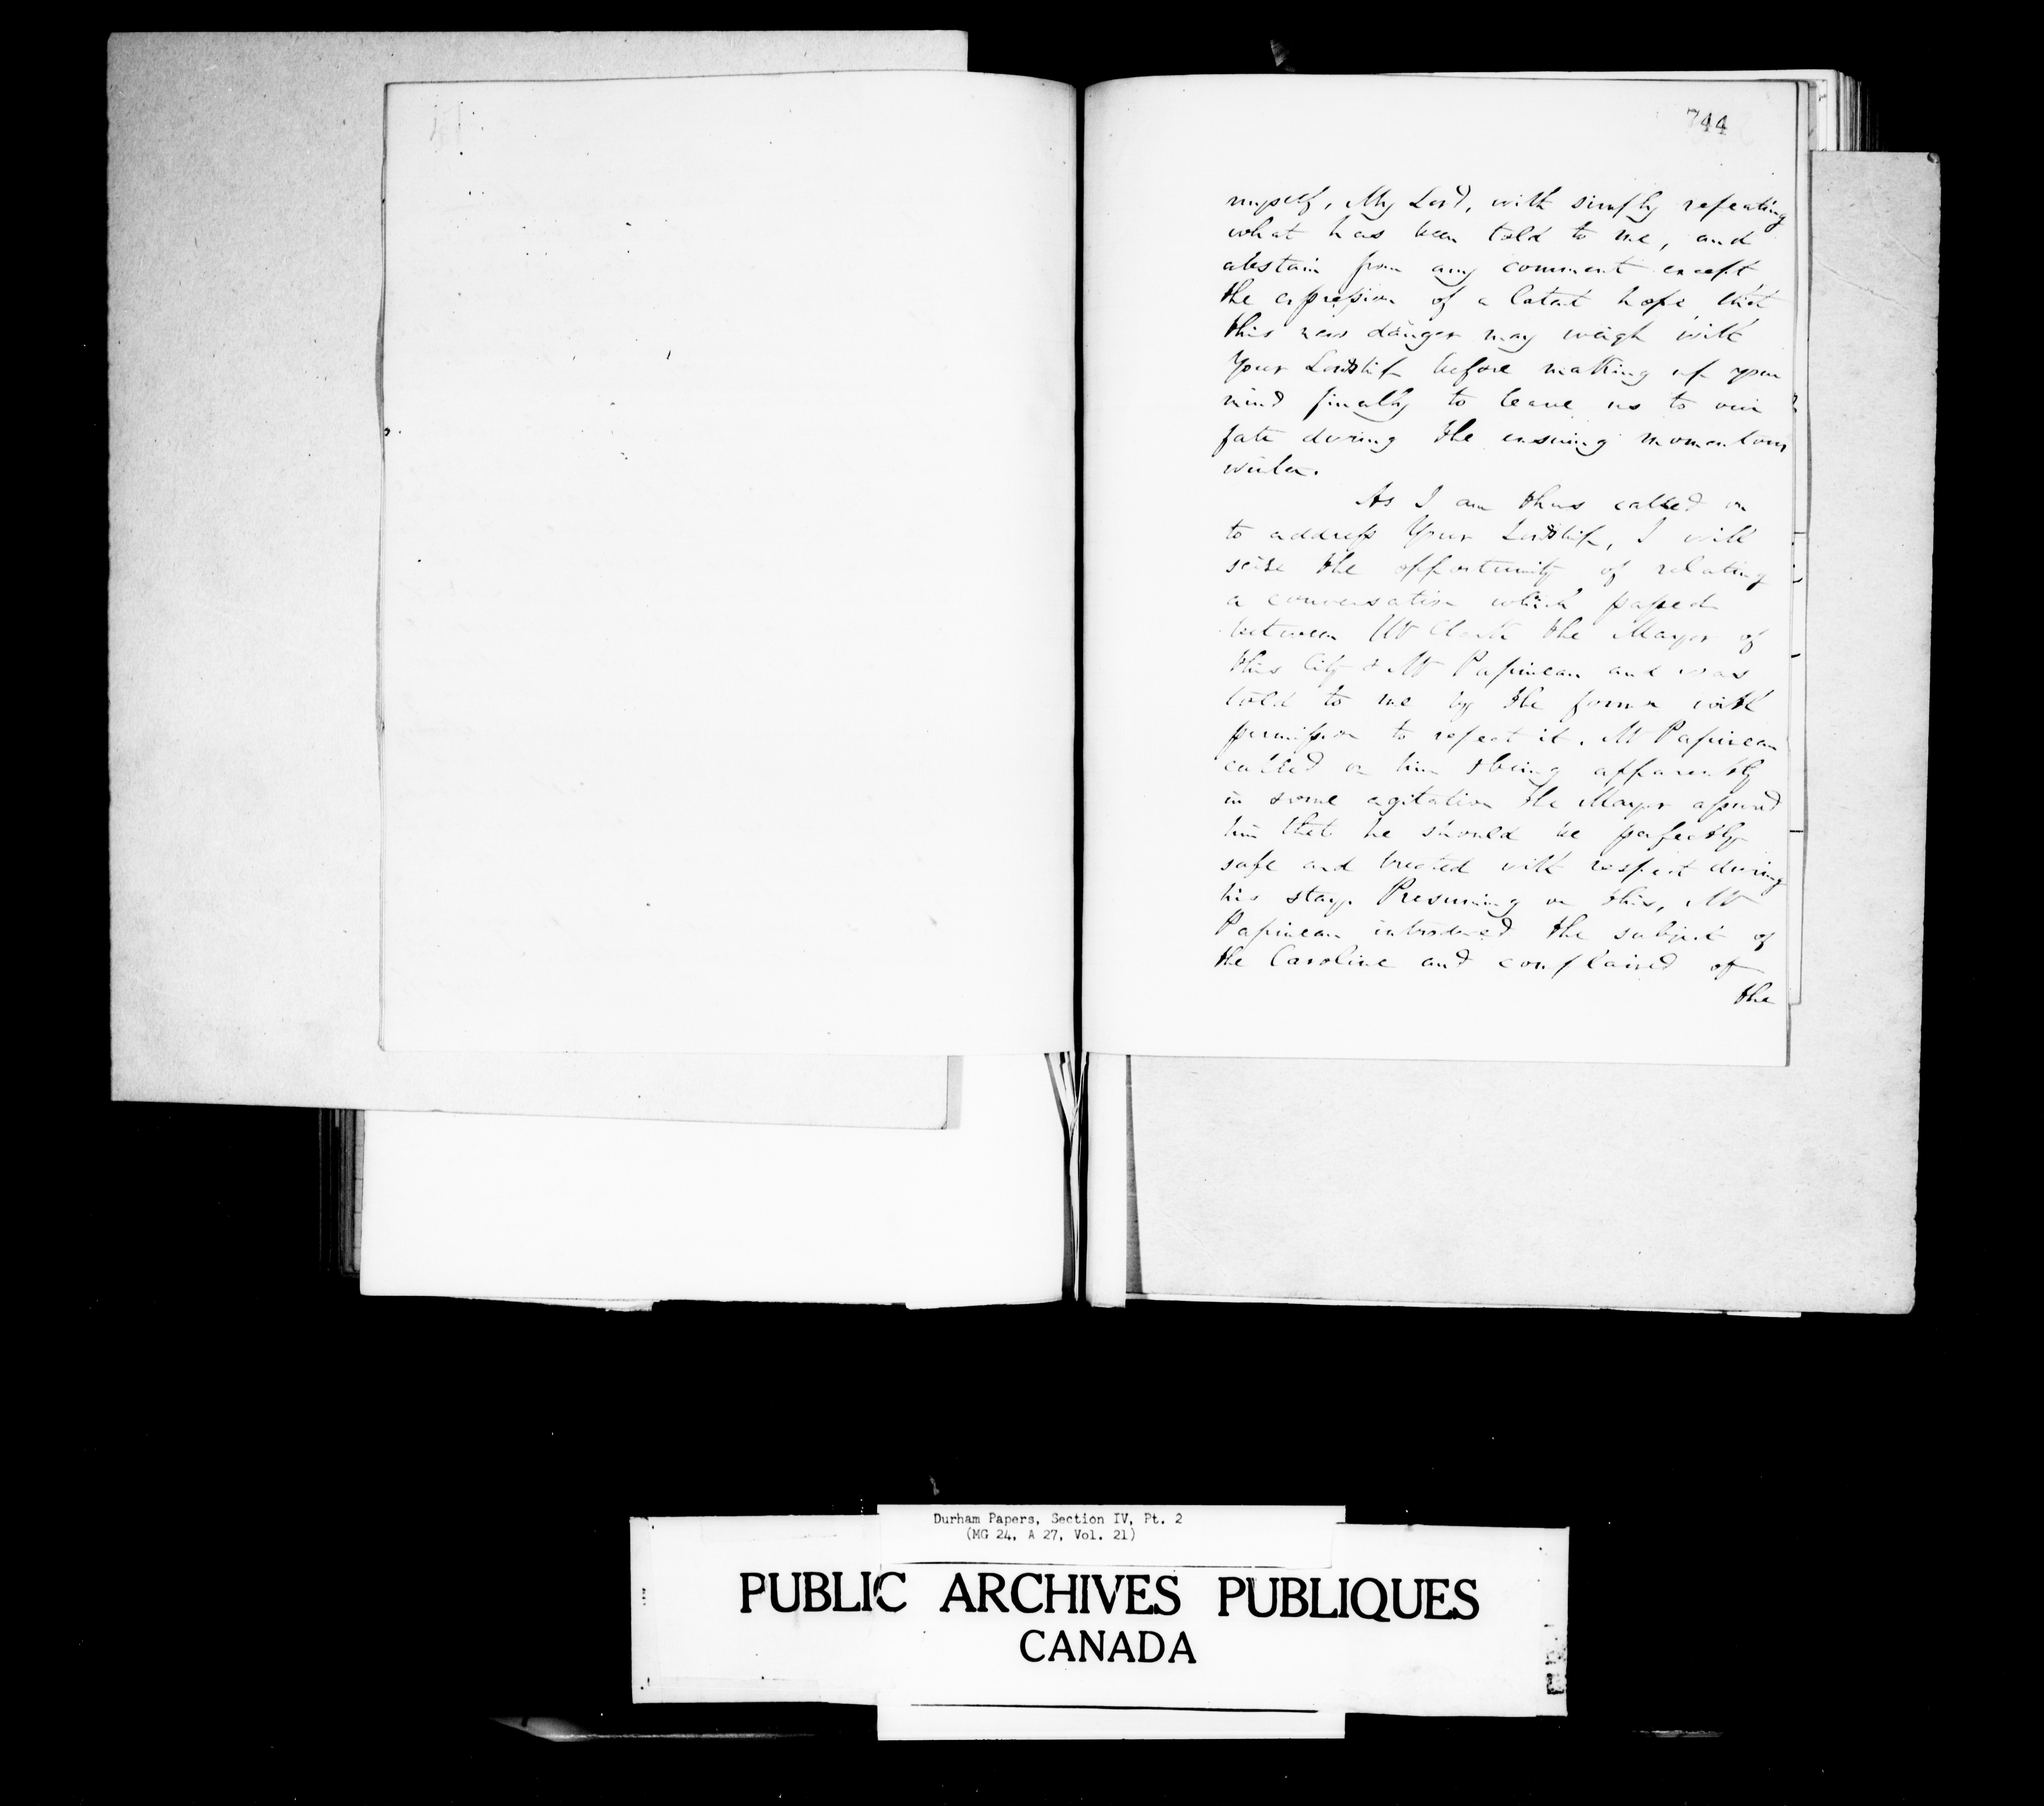 744
myself, My Lord, with simply repeating
what has been told to me, and
abstain from any comment except
the expression of a latent hope that
this new danger may weigh with
Your Lordship before making up your
mind finally to leave us to our
fate during the ensuing momentous
winter.
As I am thus called on
to address Your Lordship, I will
seize the opportunity of relating
a conversation which passed
between Mr Clark the Mayor of
this City & Mr Papineau and was
told to me by the former with
permission to repeat it. Mr Papineau
called on him & being apparently
in some agitation the Mayor assured
him that he should be perfectly
safe and treated with respect during
his stay. Presuming on this, Mr
Papineau introduced the subject of
the Caroline and complained of
the
Durham Papers, Section IV, Pt. 2
(MG 24, A 27, Vol. 21)
PUBLIC ARCHIVES PUBLIQUES
CANADA